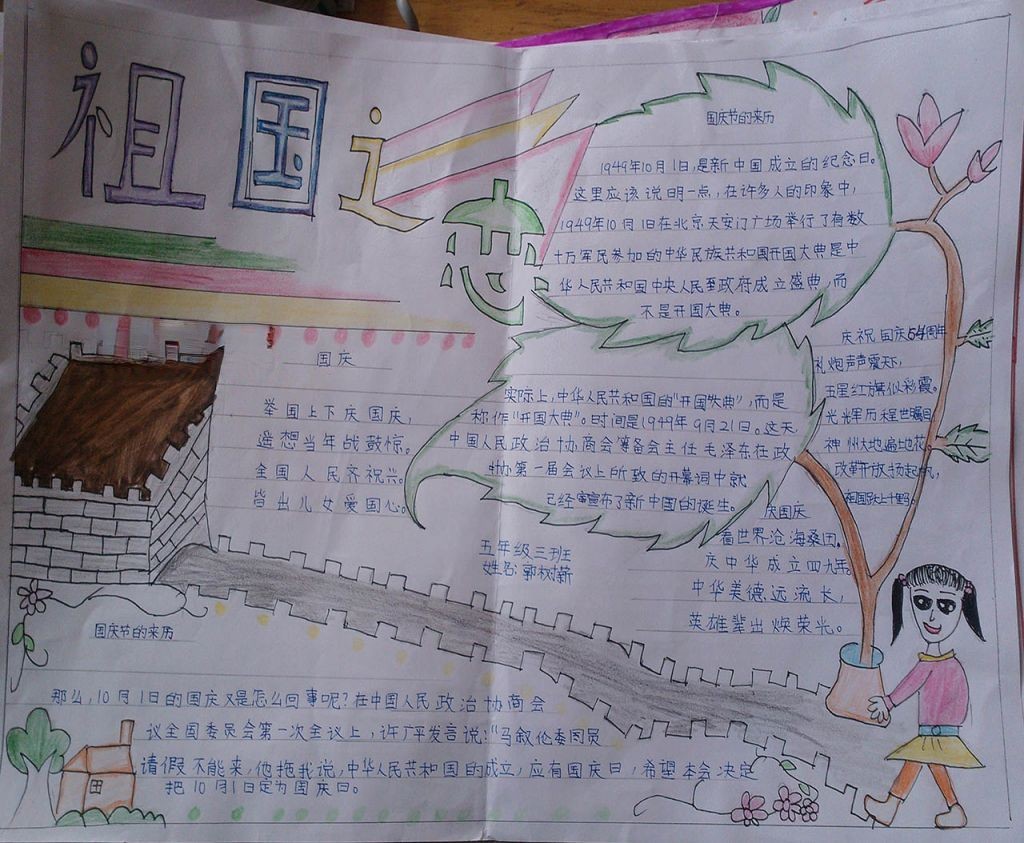 祖国
国庆节的来历
1949年10月1日,是新中国成立的纪念日。
这里应该说明一点,在许多人的印象中,
1949年10月1日在北京天安门广场举行了有数
十万军民参加的中华民族共和国开国大典是中
华人民共和国中央人民至政府成立盛典,而
不是开国大典。
实际上,中华人民共和国的"开国大典",而是
称作"开国大典"。时间是1949年9月21日。这天
中国人民政治协商会筹备会主任毛泽东在政
协第一届会议上所致的开幕词中就
已经宣布了新中国的诞生。
国庆
举国上下庆国庆,
遥想当年战鼓惊。
全国人民齐祝兴。
皆出儿女爱国心。
庆祝国庆54周年
礼炮声声震天,
五星红旗似彩霞。
光辉历程世瞩目
神州大地遍地花。
改革开放扬起帆,
祖国跃上千里马。
庆国庆
看世界沧海桑田。
庆中华成立四九年。
中华美德远流长,
英雄辈出焕荣光。
五年级三班
姓名:郭树薪
国庆节的来历
那么,10月1日的国庆又是怎么回事呢?在中国人民政治协商会
议全国委员会第一次会议上,许广平发言说:"马叙伦委员
请假不能来,他拖我说,中华人民共和国的成立,应有国庆日,希望本会决定
把10月1日定为国庆日。